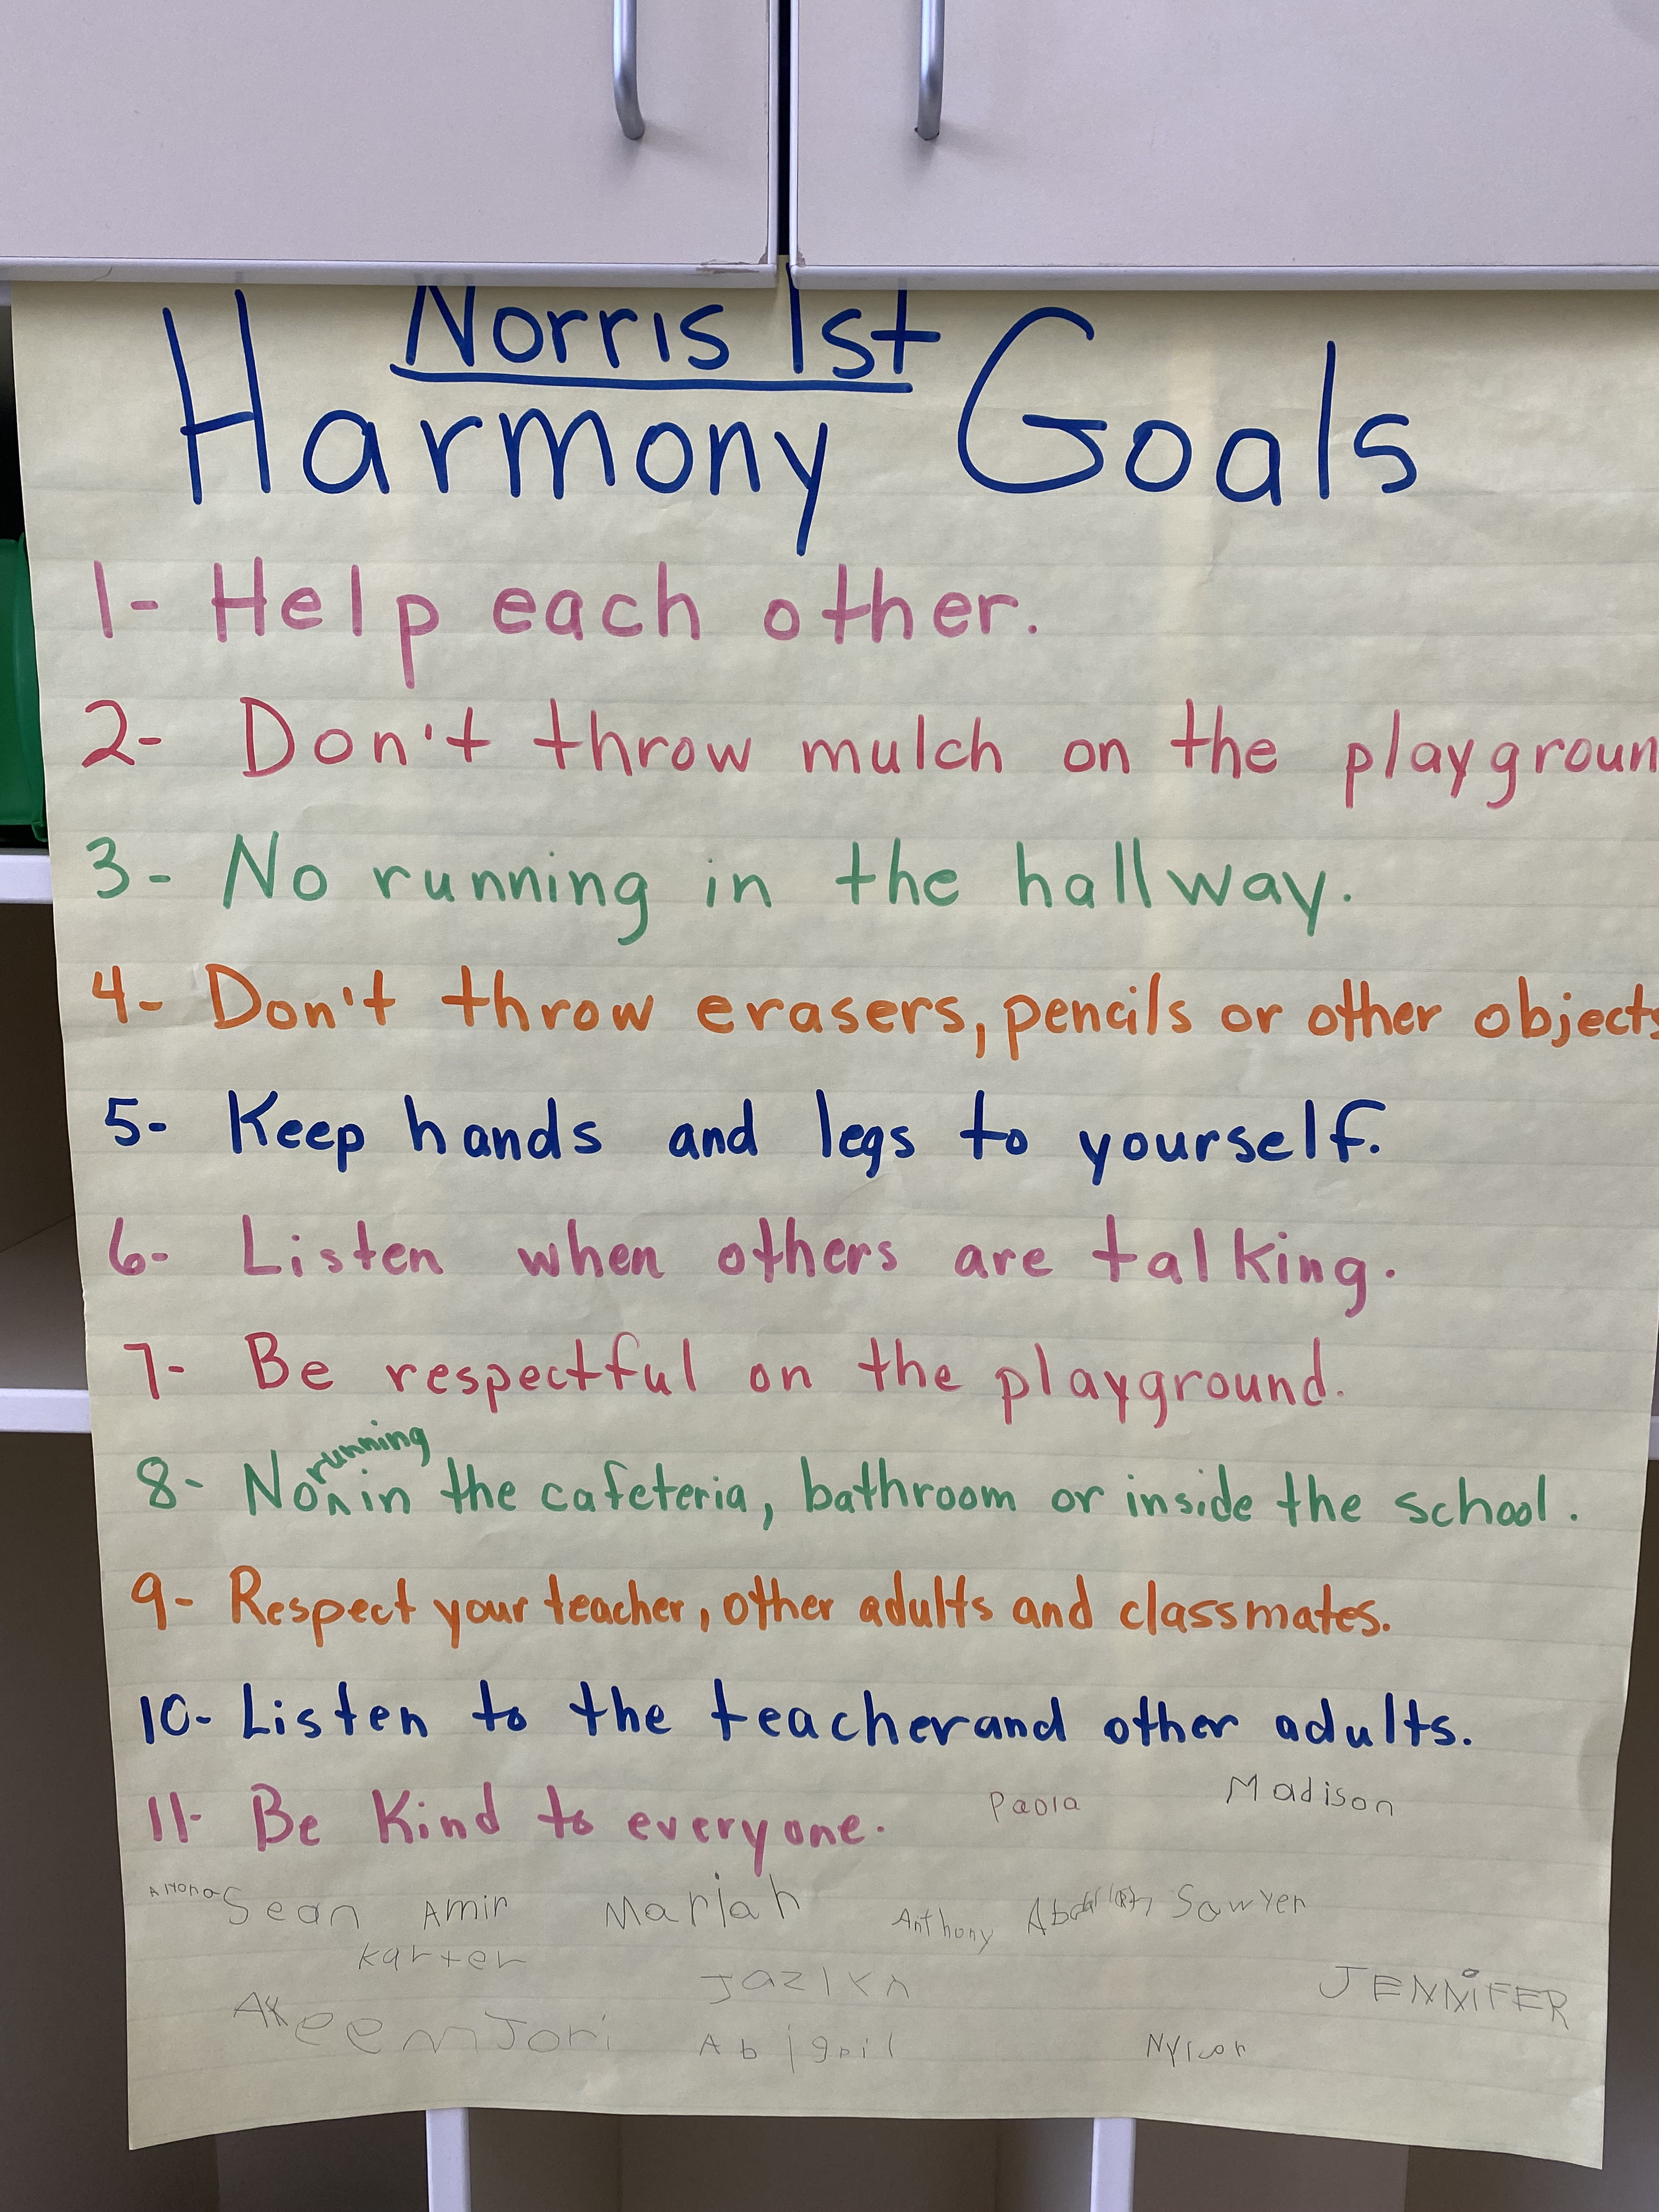 Norris 1st
Harmony Goals
1- Help each other.
2- Don't throw mulch on the playgroun
3- No running in the hallway.
4- Don't throw erasers, pencils or other objects
5- Keep hands and legs to yourself.
6- Listen when others are talking.
7- Be respectful on the playground.
8- No running in the cafeteria, bathroom or inside the school.
9- Respect your teacher, other adults and classmates.
10- Listen to the teacher and other adults.
11- Be Kind to everyone. Paola Madison
Sean Amir Mariah Anthony Sawyer
Karter
JENNiFER
Akeem Jori Abigail